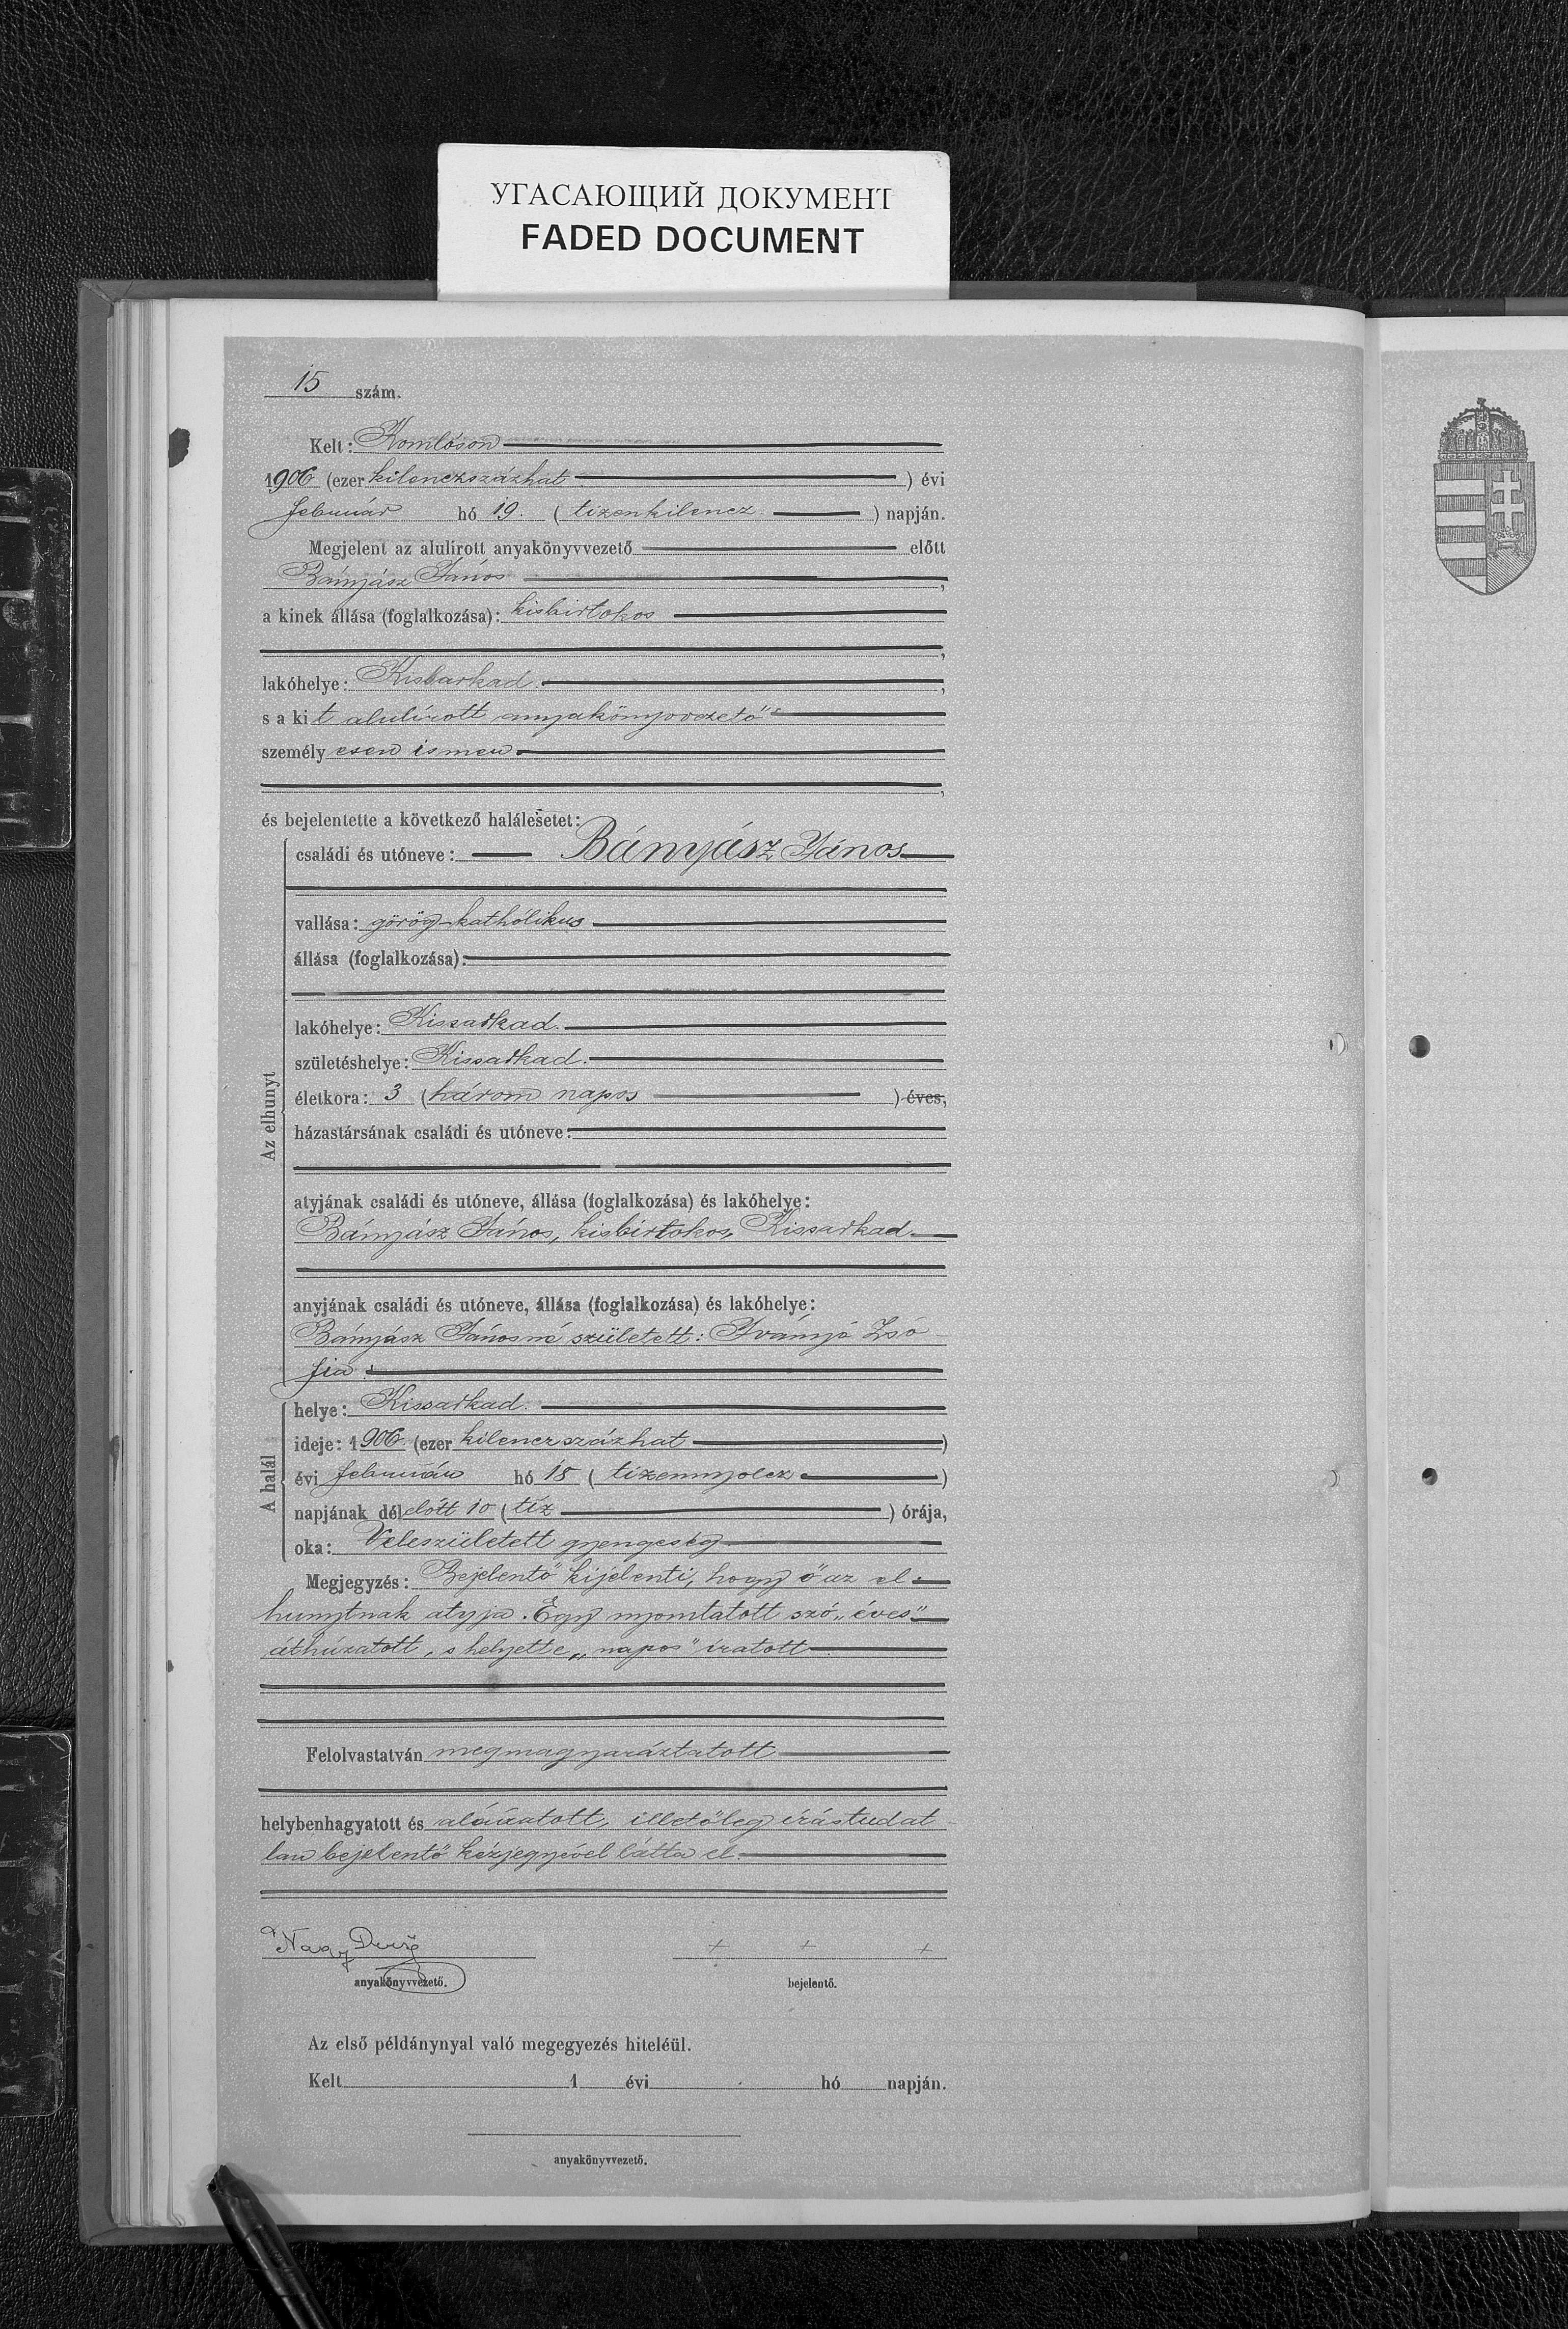 УГАСАЮЩИЙ ДОКУМЕНТ
FADED DOCUMENT
15 szám.
Kelt: Komlóson
1906 (ezer kilenczszázhat) évi
február hó 19. (tizenkilencz) napján.
Megjelent az alulírott anyakönyvvezető előtt
Bányász János,
a kinek állása (foglalkozása): kisbirtokos
,
lakóhelye: Kissarkad,
s a kit alulírott anyakönyvvezető
személyesen ismer
,
és bejelentette a következő halálesetet:
Az elhunyt
családi és utóneve: Bányász János
vallása: görög-katholikus
állása (foglalkozása):
lakóhelye: Kissarkad.
születéshelye: Kissarkad.
életkora: 3 (három napos) éves,
házastársának családi és utóneve:
atyjának családi és utóneve, állása (foglalkozása) és lakóhelye:
Bányász János, kisbirtokos, Kissarkad.
anyjának családi és utóneve, állása (foglalkozása) és lakóhelye:
Bányász Jánosné született: Iványó Zsó
fia.
A halál
helye: Kissarkad.
ideje: 1906 (ezer kilenczszázhat)
évi február hó 18 (tizennyolcz)
napjának délelőtt 10 (tíz) órája,
oka: Veleszületett gyengeség
Megjegyzés: Bejelentő kijelenti, hogy ő az el-
hunytnak atyja. Egy nyomtatott szó „éves"
áthúzatott, s helyette „napos" íratott
Felolvastatván megmagyaráztatott
helybenhagyatott és aláíratott, illetőleg írástudat
lan bejelentő kézjegyével látta el.
Nagy + + +
anyakönyvvezető. bejelentő.
Az első példánynyal való megegyezés hiteléül.
Kelt 1 évi hó napján.
anyakönyvvezető.